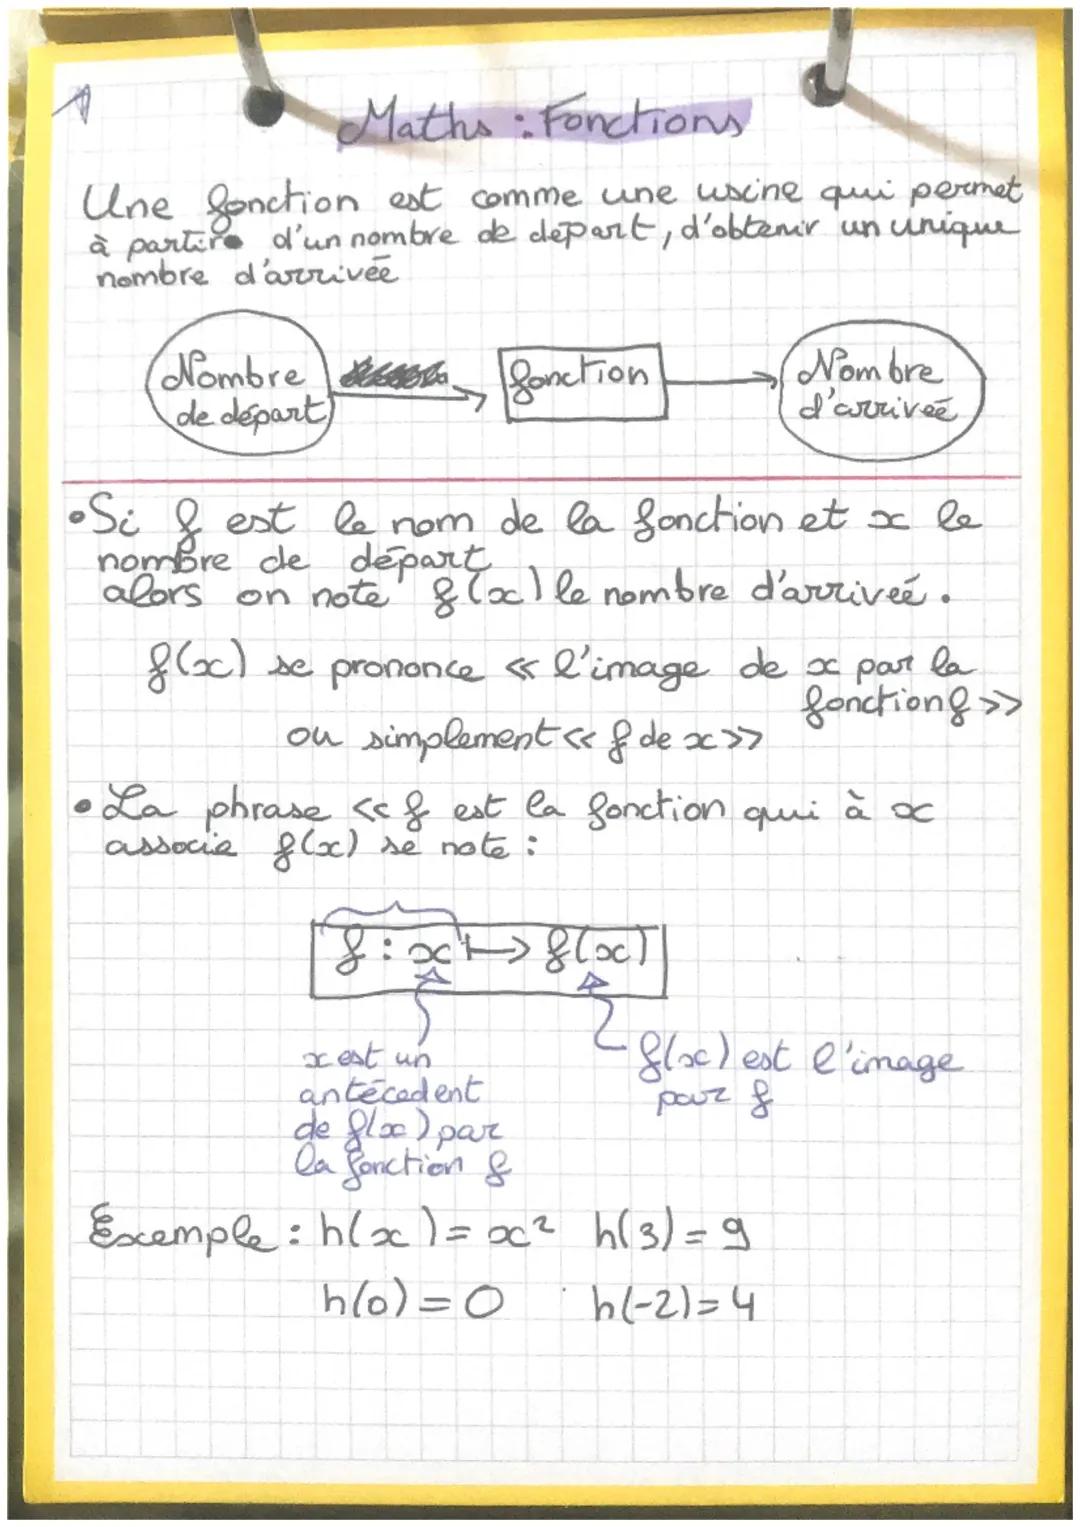 1
Maths : Fonctions
Une fonction est comme une uscine qui permet
à partir d'un nombre de départ, d'obtenir un unique
nombre d'arrivée
Nombre
de départ
fonction
Nombre
d'arriveé
•Si f est le nom de la fonction et x le
nombre de départ
alors on note f(x) le nombre d'arriveé.
f(x) se prononce << l'image de x par la
fonction f >>
ou simplement << f de x >>
• La phrase << f est la fonction qui à x
associe f(x) se note :
f : x ↦ f(x)
x est un
antécedent
de f(x) par
la fonction f
f(x) est l'image
par f
Exemple : h(x) = x² h(3) = 9
h(0) = 0 h(-2) = 4